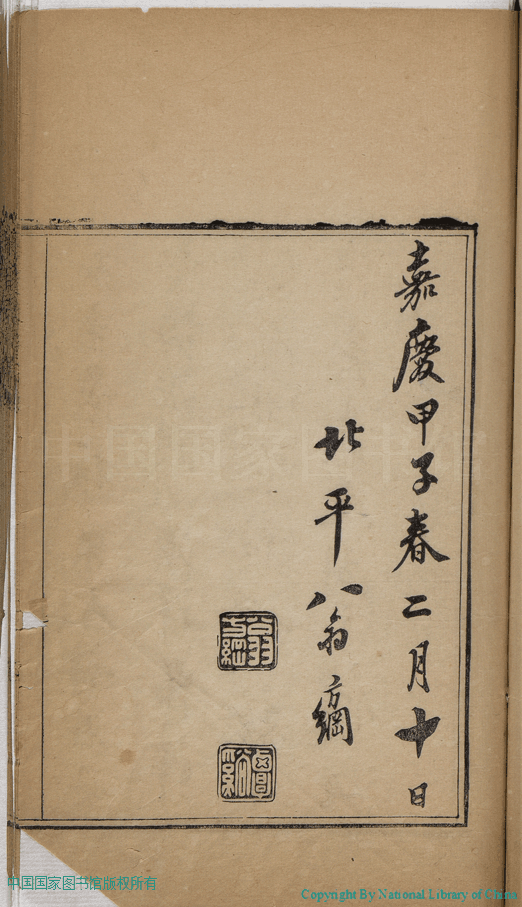 嘉慶甲子春二月十日
北平翁方綱
翁方綱
覃谿
中国国家图书馆
中国国家图书馆版权所有
Copyright By National Library of China